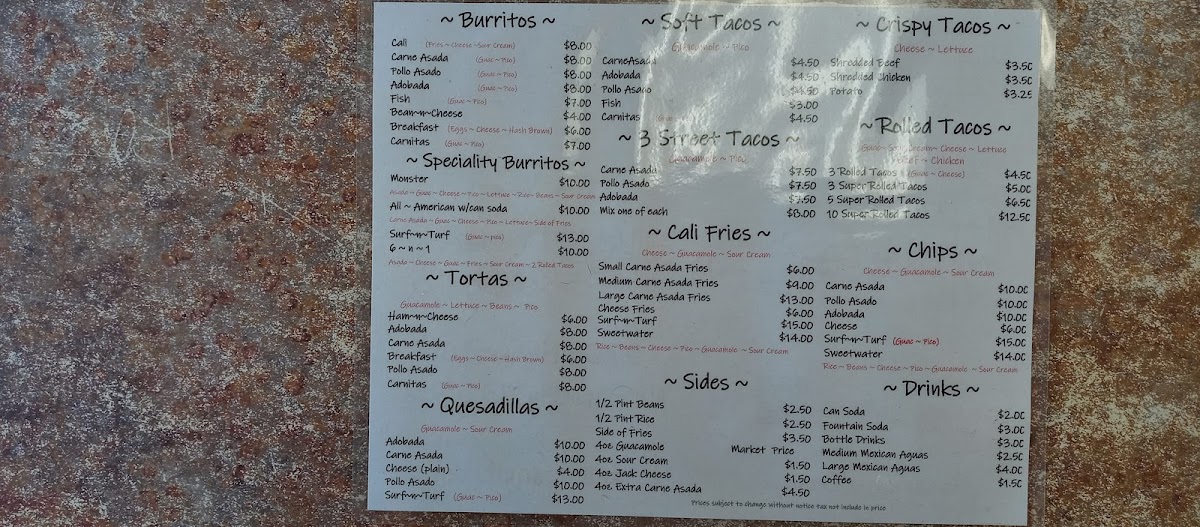 ~ Burritos ~
Cali (Fries ~ Cheese ~ Sour Cream) $8.00
Carne Asada (Guac ~ Pico) $8.00
Pollo Asado (Guac ~ Pico) $8.00
Adobada (Guac ~ Pico) $8.00
Fish (Guac ~ Pico) $7.00
Bean~n~Cheese $4.00
Breakfast (Eggs ~ Cheese ~ Hash Brown) $6.00
Carnitas (Guac ~ Pico) $7.00
~ Speciality Burritos ~
Monster $10.00
Asada ~ Guac ~ Cheese ~ Pico ~ Lettuce ~ Rice ~ Beans ~ Sour Cream
All ~ American w/can soda $10.00
Carne Asada ~ Guac ~ Cheese ~ Pico ~ Lettuce ~ Side of Fries
Surf~n~Turf (Guac ~ pico) $13.00
6 ~ n ~ 1 $10.00
Asado ~ Cheese ~ Guac ~ Fries ~ Sour Cream ~ 2 Rolled Tacos
~ Tortas ~
Guacamole ~ Lettuce ~ Beans ~ Pico
Ham~n~Cheese $6.00
Adobada $8.00
Carne Asada $8.00
Breakfast (Eggs ~ Cheese ~ Hash Brown) $6.00
Pollo Asado $8.00
Carnitas (Guac ~ Pico) $8.00
~ Quesadillas ~
Guacamole ~ Sour Cream
Adobada $10.00
Carne Asada $10.00
Cheese (plain) $4.00
Pollo Asado $10.00
Surf~n~Turf (Guac ~ Pico) $13.00
~ Soft Tacos ~
Guacamole ~ Pico
CarneAsada $4.50
Adobada $4.50
Pollo Asado $4.50
Fish $3.00
Carnitas $4.50
~ 3 Street Tacos ~
Guacamole ~ Pico
Carne Asada $7.50
Pollo Asado $7.50
Adobada $7.50
Mix one of each $8.00
~ Cali Fries ~
Cheese ~ Guacamole ~ Sour Cream
Small Carne Asada Fries $6.00
Medium Carne Asada Fries $9.00
Large Carne Asada Fries $13.00
Cheese Fries $6.00
Surf~n~Turf $15.00
Sweetwater $14.00
Rice ~ Beans ~ Cheese ~ Pico ~ Guacamole ~ Sour Cream
~ Sides ~
1/2 Pint Beans $2.50
1/2 Pint Rice $2.50
Side of Fries $3.50
4oz Guacamole Market Price
4oz Sour Cream $1.50
4oz Jack Cheese $1.50
4oz Extra Carne Asada $4.50
Prices subject to change without notice tax not include in price
~ Crispy Tacos ~
Cheese ~ Lettuce
Shredded Beef $3.50
Shredded Chicken $3.50
Potato $3.25
~ Rolled Tacos ~
Guac ~ Sour Cream ~ Cheese ~ Lettuce
~ Chicken
3 Rolled Tacos (Guac ~ Cheese) $4.50
3 Super Rolled Tacos $5.00
5 Super Rolled Tacos $6.50
10 Super Rolled Tacos $12.50
~ Chips ~
Cheese ~ Guacamole ~ Sour Cream
Carne Asada $10.00
Pollo Asado $10.00
Adobada $10.00
Cheese $6.00
Surf~n~Turf (Guac ~ Pico) $15.00
Sweetwater $14.00
Rice ~ Beans ~ Cheese ~ Pico ~ Guacamole ~ Sour Cream
~ Drinks ~
Can Soda $2.00
Fountain Soda $3.00
Bottle Drinks $3.00
Medium Mexican Aguas $2.50
Large Mexican Aguas $4.00
Coffee $1.50